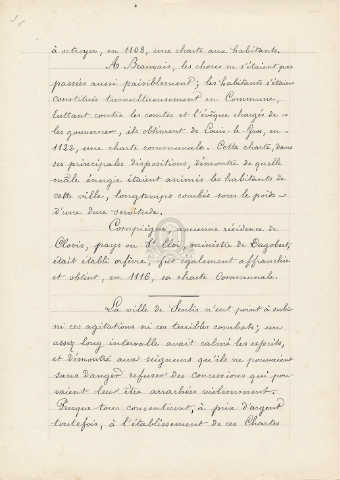 à octroyer, en 1108, une charte aux habitants.
A Beauvais, les choses ne s'étaient pas
passées aussi paisiblement; les habitants s'étaient
constitués tumultueusement en Commune,
luttant contre les comtes et l'évêque chargés de
les gouverner, ils obtinrent de Louis le Gros, en
1122, une charte communale. Cette charte, dans
ses principales dispositions, démontre de quelle
mâle énergie étaient animés les habitants de
cette ville, longtemps courbée sous le poids
d'une dure servitude.
Compiègne, ancienne résidence de
Clovis, pays où St Eloi, ministre de Dagobert,
était établi orfèvre, fut également affranchie
et obtint, en 1116, sa charte communale.
La ville de Senlis n'eut point à subir
ni ces agitations ni ces terribles combats; un
assez long intervalle avait calmé les esprits,
et démontré aux seigneurs qu'ils ne pouvaient
sans danger refuser des concessions qui pou
vaient leur être arrachées violemment.
Presque tous consentirent, à prix d'argent
toutefois, à l'établissement de ces Chartes